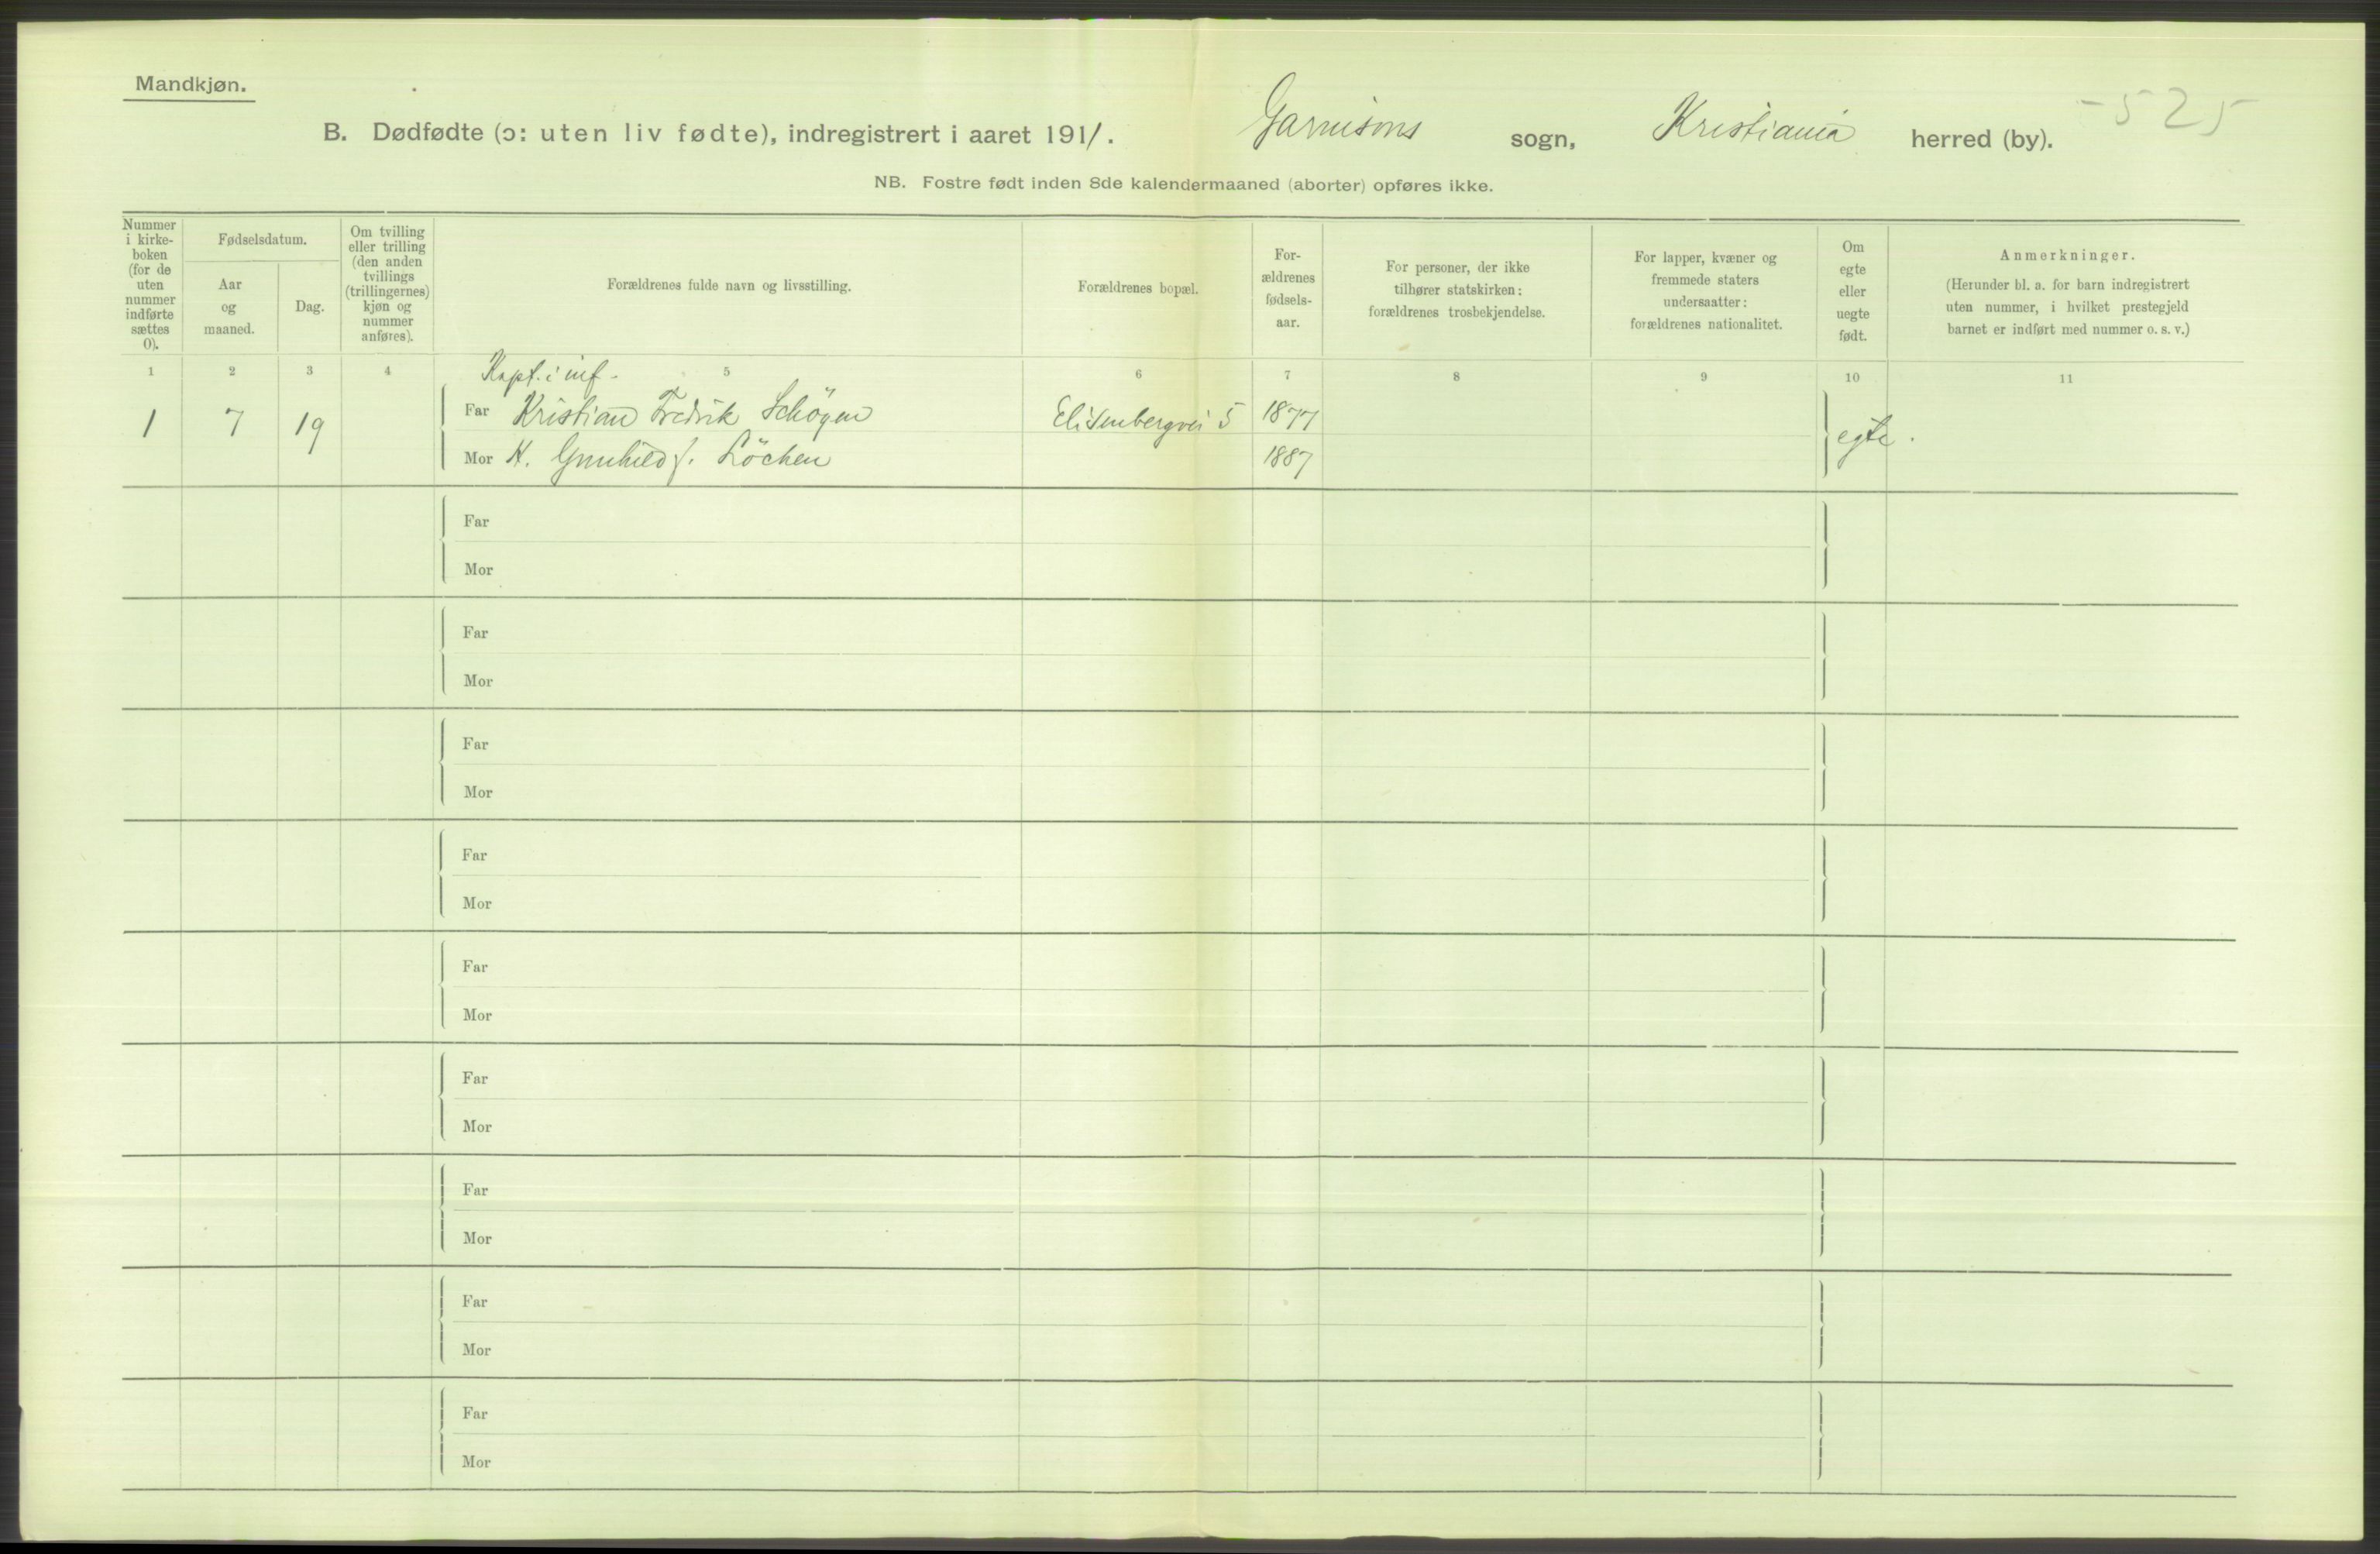 Mandkjøn.
B. Dødfødte (ɔ: uten liv fødte), indregistrert i aaret 1911. Garnisons sogn, Kristiania herred (by). -525
NB. Fostre født inden 8de kalendermaaned (aborter) opføres ikke.
Nummer i kirke-boken (for de uten nummer indførte sættes 0).
Fødselsdatum.
Aar og maaned.
Dag.
Om tvilling eller trilling (den anden tvillings (trillingernes) kjøn og nummer anføres).
Forældrenes fulde navn og livsstilling.
Forældrenes bopæl.
For-ældrenes fødsels-aar.
For personer, der ikke tilhører statskirken: forældrenes trosbekjendelse.
For lapper, kvæner og fremmede staters undersaatter: forældrenes nationalitet.
Om egte eller uegte født.
Anmerkninger.
(Herunder bl. a. for barn indregistrert uten nummer, i hvilket prestegjeld barnet er indført med nummer o. s. v.)
1 2 3 4 5 6 7 8 9 10 11
Kapt. i inf.
1 7 19 Far Kristian Fredrik Schøyen Elisenbergvei 5 1877 egte.
Mor H. Gunhild f. Löchen 1887
Far
Mor
Far
Mor
Far
Mor
Far
Mor
Far
Mor
Far
Mor
Far
Mor
Far
Mor
Far
Mor